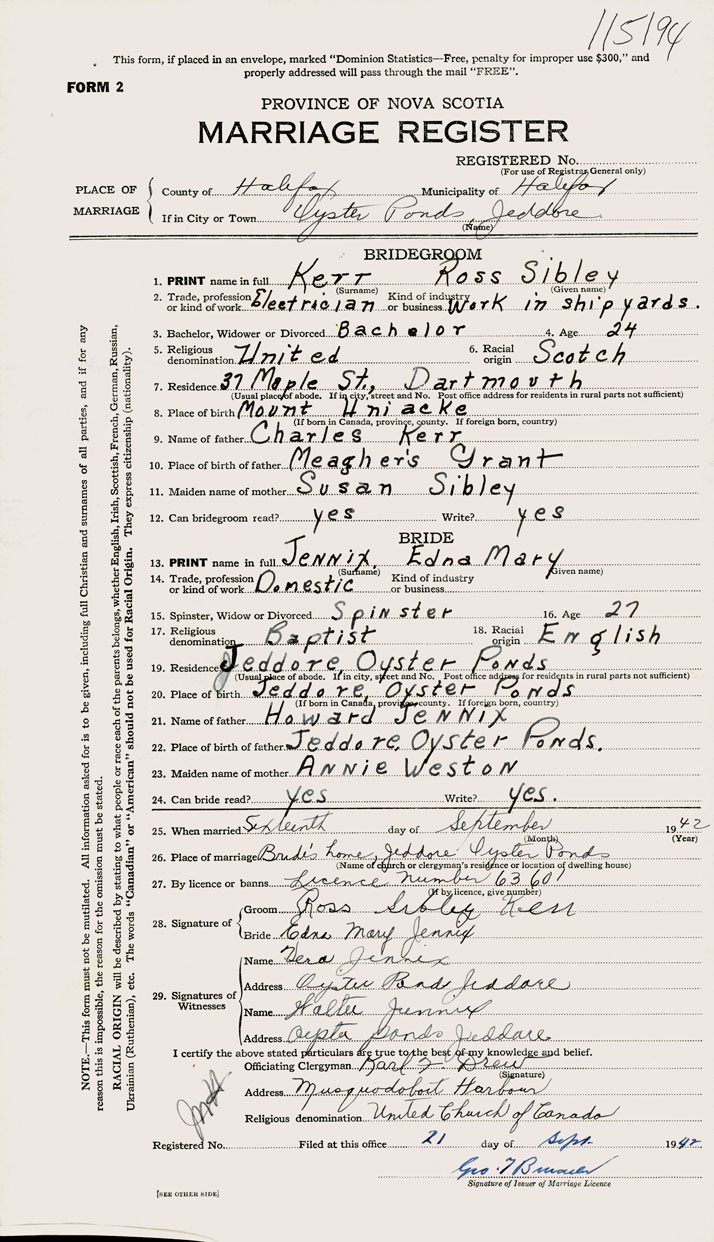 115194
This form, if placed in an envelope, marked "Dominion Statistics—Free, penalty for improper use $300," and
properly addressed will pass through the mail "FREE".
FORM 2
PROVINCE OF NOVA SCOTIA
MARRIAGE REGISTER
REGISTERED No.
(For use of Registrar General only)
PLACE OF MARRIAGE
County of Halifax Municipality of Halifax
If in City or Town Oyster Ponds, Jeddore
(Name)
BRIDEGROOM
1. PRINT name in full Kerr Ross Sibley
(Surname) (Given name)
2. Trade, profession or kind of work Electrician Kind of industry or business Work in shipyards.
3. Bachelor, Widower or Divorced Bachelor 4. Age 24
5. Religious denomination United 6. Racial origin Scotch
7. Residence 37 Maple St., Dartmouth
(Usual place of abode. If in city, street and No. Post office address for residents in rural parts not sufficient)
8. Place of birth Mount Uniacke
(If born in Canada, province, county. If foreign born, country)
9. Name of father Charles Kerr
10. Place of birth of father Meagher's Grant
11. Maiden name of mother Susan Sibley
12. Can bridegroom read? yes Write? yes
BRIDE
13. PRINT name in full Jennix, Edna Mary
(Surname) Given name)
14. Trade, profession or kind of work Domestic Kind of industry or business
15. Spinster, Widow or Divorced Spinster 16. Age 27
17. Religious denomination Baptist 18. Racial origin English
19. Residence Jeddore, Oyster Ponds
(Usual place of abode. If in city, street and No. Post office address for residents in rural parts not sufficient)
20. Place of birth Jeddore, Oyster Ponds
(If born in Canada, province, county. If foreign born, country)
21. Name of father Howard Jennix
22. Place of birth of father Jeddore, Oyster Ponds.
23. Maiden name of mother Annie Weston
24. Can bride read? yes Write? yes.
25. When married Sixteenth day of September 1942
(Month) (Year)
26. Place of marriage Bride's home, Jeddore Oyster Ponds
(Name of church or clergyman's residence or location of dwelling house)
27. By licence or banns Licence number 63601
(If by licence, give number)
28. Signature of
Groom Ross Sibley Kerr
Bride Edna Mary Jennix
29. Signatures of Witnesses
Name Vera Jennix
Address Oyster Ponds Jeddore
Name Walter Jennix
Address Oyster Ponds Jeddore
I certify the above stated particulars are true to the best of my knowledge and belief.
Officiating Clergyman Karl F. Drew
(Signature)
Address Musquodoboit Harbour
Religious denomination United Church of Canada
Registered No. Filed at this office 21 day of Sept. 1942
Geo. T
Signature of Issuer of Marriage Licence
[SEE OTHER SIDE]
NOTE.—This form must not be mutilated. All information asked for is to be given, including full Christian and surnames of all parties, and if for any
reason this is impossible, the reason for the omission must be stated.
RACIAL ORIGIN will be described by stating to what people or race each of the parents belongs, whether English, Irish, Scottish, French, German, Russian,
Ukrainian (Ruthenian), etc. The words "Canadian" or "American" should not be used for Racial Origin. They express citizenship (nationality).